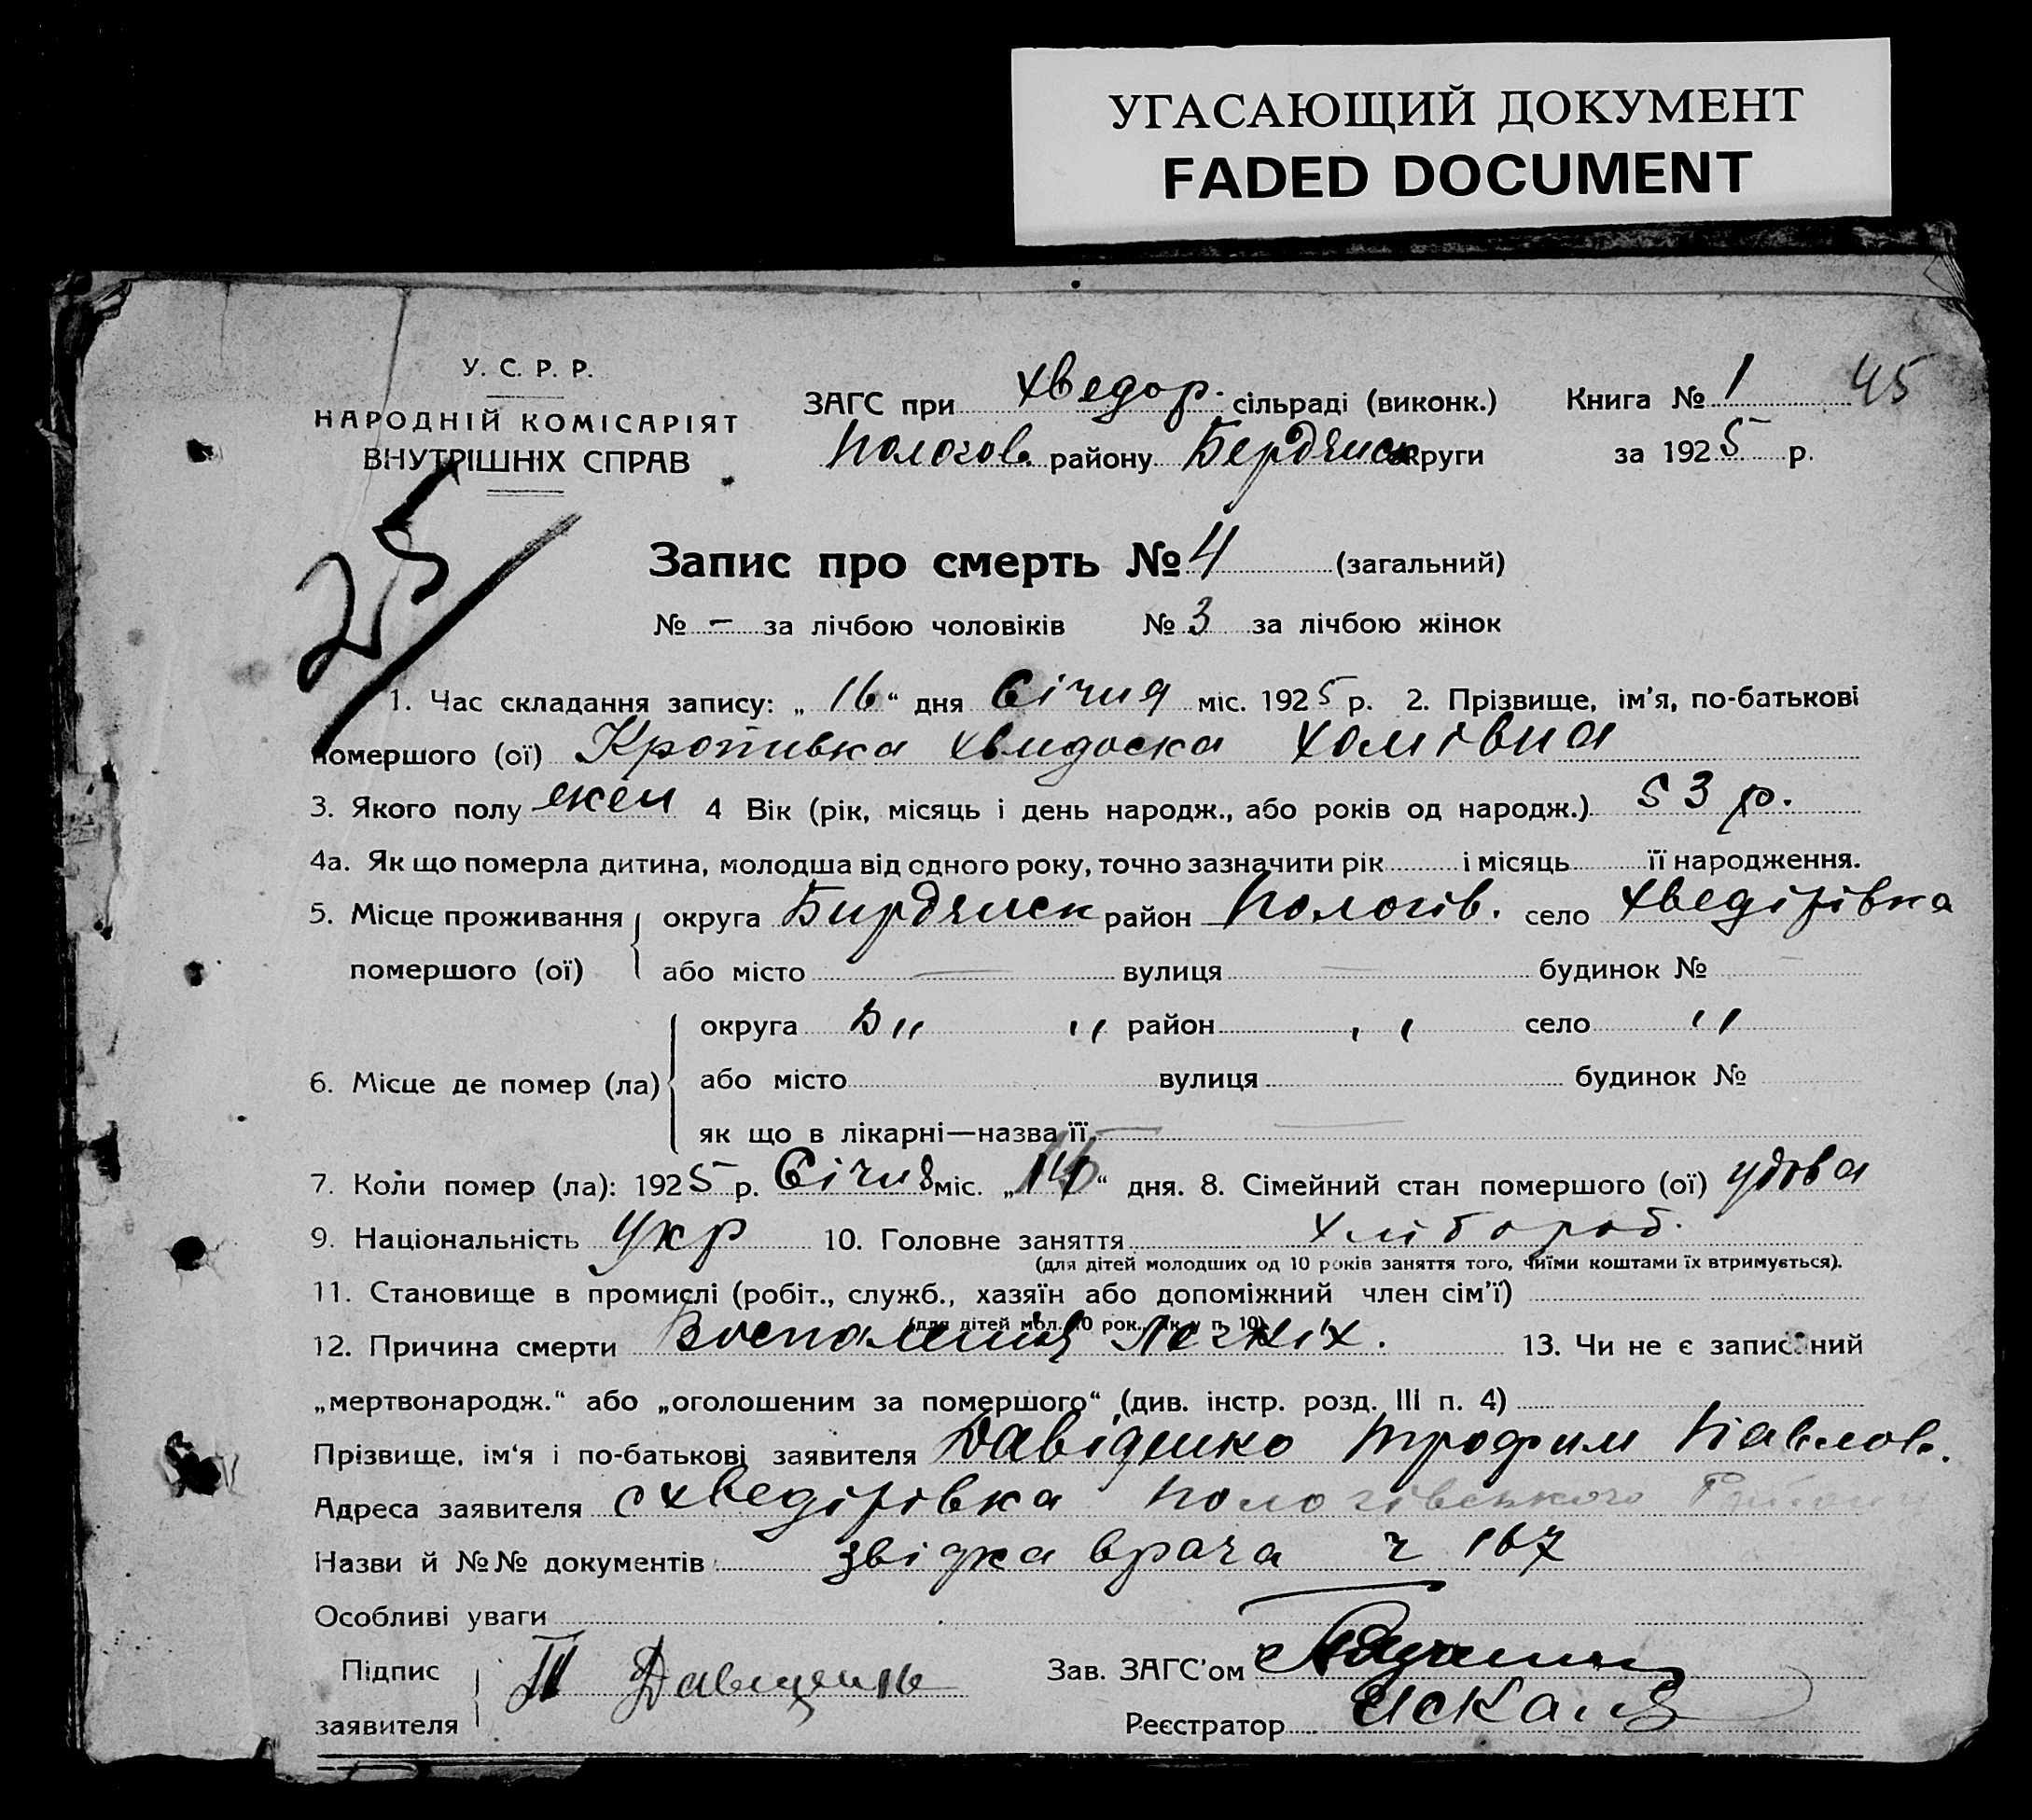 УГАСАЮЩИЙ ДОКУМЕНТ
FADED DOCUMENT
У. С. Р. Р.
НАРОДНІЙ КОМІСАРІЯТ
ВНУТРІШНІХ СПРАВ
ЗАГС при Хведор. сільраді (виконк.) Книга № 1 45
Пологов. району Бердянск округи за 1925 р.
25
Запис про смерть № 4 (загальний)
№ - за лічбою чоловіків № 3 за лічбою жінок
1. Час складання запису: „ 16 “ дня Січня міс. 1925 р. 2. Прізвище, ім'я, по-батькові
помершого (ої) Кропивка Хвидоска Хомівна
3. Якого полу жен 4 Вік (рік, місяць і день народж., або років од народж.) 53 р.
4а. Як що померла дитина, молодша від одного року, точно зазначити рік і місяць її народження.
5. Місце проживання округа Бирдянск район Пологів. село Хведірівка
помершого (ої) або місто — вулиця — будинок № —
округа Б „ „ район „ село „
6. Місце де помер (ла) або місто вулиця будинок №
як що в лікарні—назва її —
7. Коли помер (ла): 1925 р. Січня міс. „ “ дня. 8. Сімейний стан помершого (ої) удова
9. Національність Укр 10. Головне заняття Хлібороб.
(для дітей молодших од 10 років заняття того, чиїми коштами їх втримується).
11. Становище в промислі (робіт., служб., хазяїн або допоміжний член сім'ї)
(для дітей мол. 10 рок., як у п. 10)
12. Причина смерти Воспаления Легких. 13. Чи не є записаний
„мертвонародж.“ або „оголошеним за помершого“ (див. інстр. розд. III п. 4)
Прізвище, ім'я і по-батькові заявителя Давіденко Трофим Павлов.
Адреса заявителя с Хведірівка Пологівського Району
Назви й №№ документів звідка врача ч 167
Особливі уваги
Підпис
заявителя Т Давиденко
Зав. ЗАГС'ом
Реєстратор